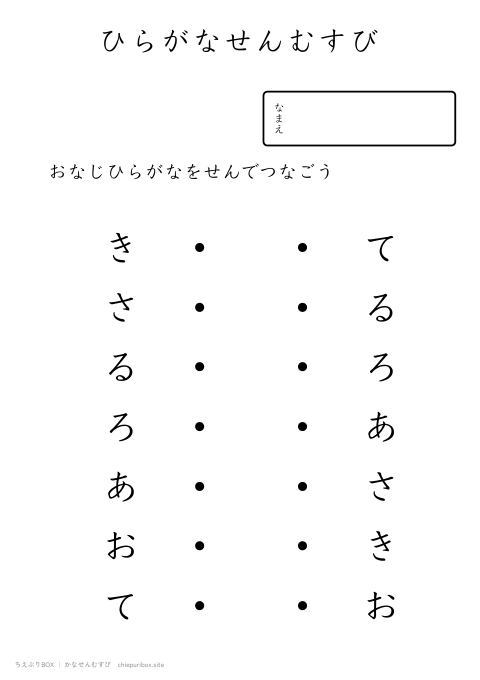 ひらがなせんむすび
なまえ
おなじひらがなをせんでつなごう
き ● ● て
さ ● ● る
る ● ● ろ
ろ ● ● あ
あ ● ● さ
お ● ● き
て ● ● お
ちえぷりBOX | かなせんむすび chiepuribox.site